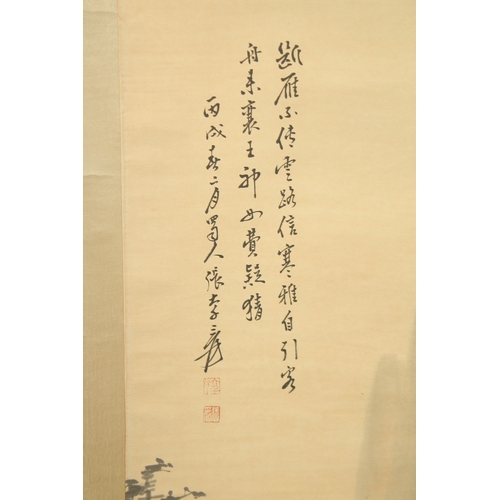 斷雁不傳雲路信寒雅自引客
舟來襄王神女費疑猜
丙戌春二月蜀人張大千爰